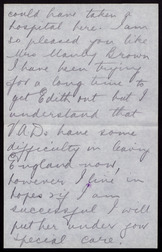 could have taken a
hospital here. I am
so pleased you like
Mrs Mandy Brown
I have been trying
for a long time to
get Edith out but I
understand that
VADs have some
difficulty in leaving
England now,
however I live in
hopes & if I am
successful I will
put her under your
special care.